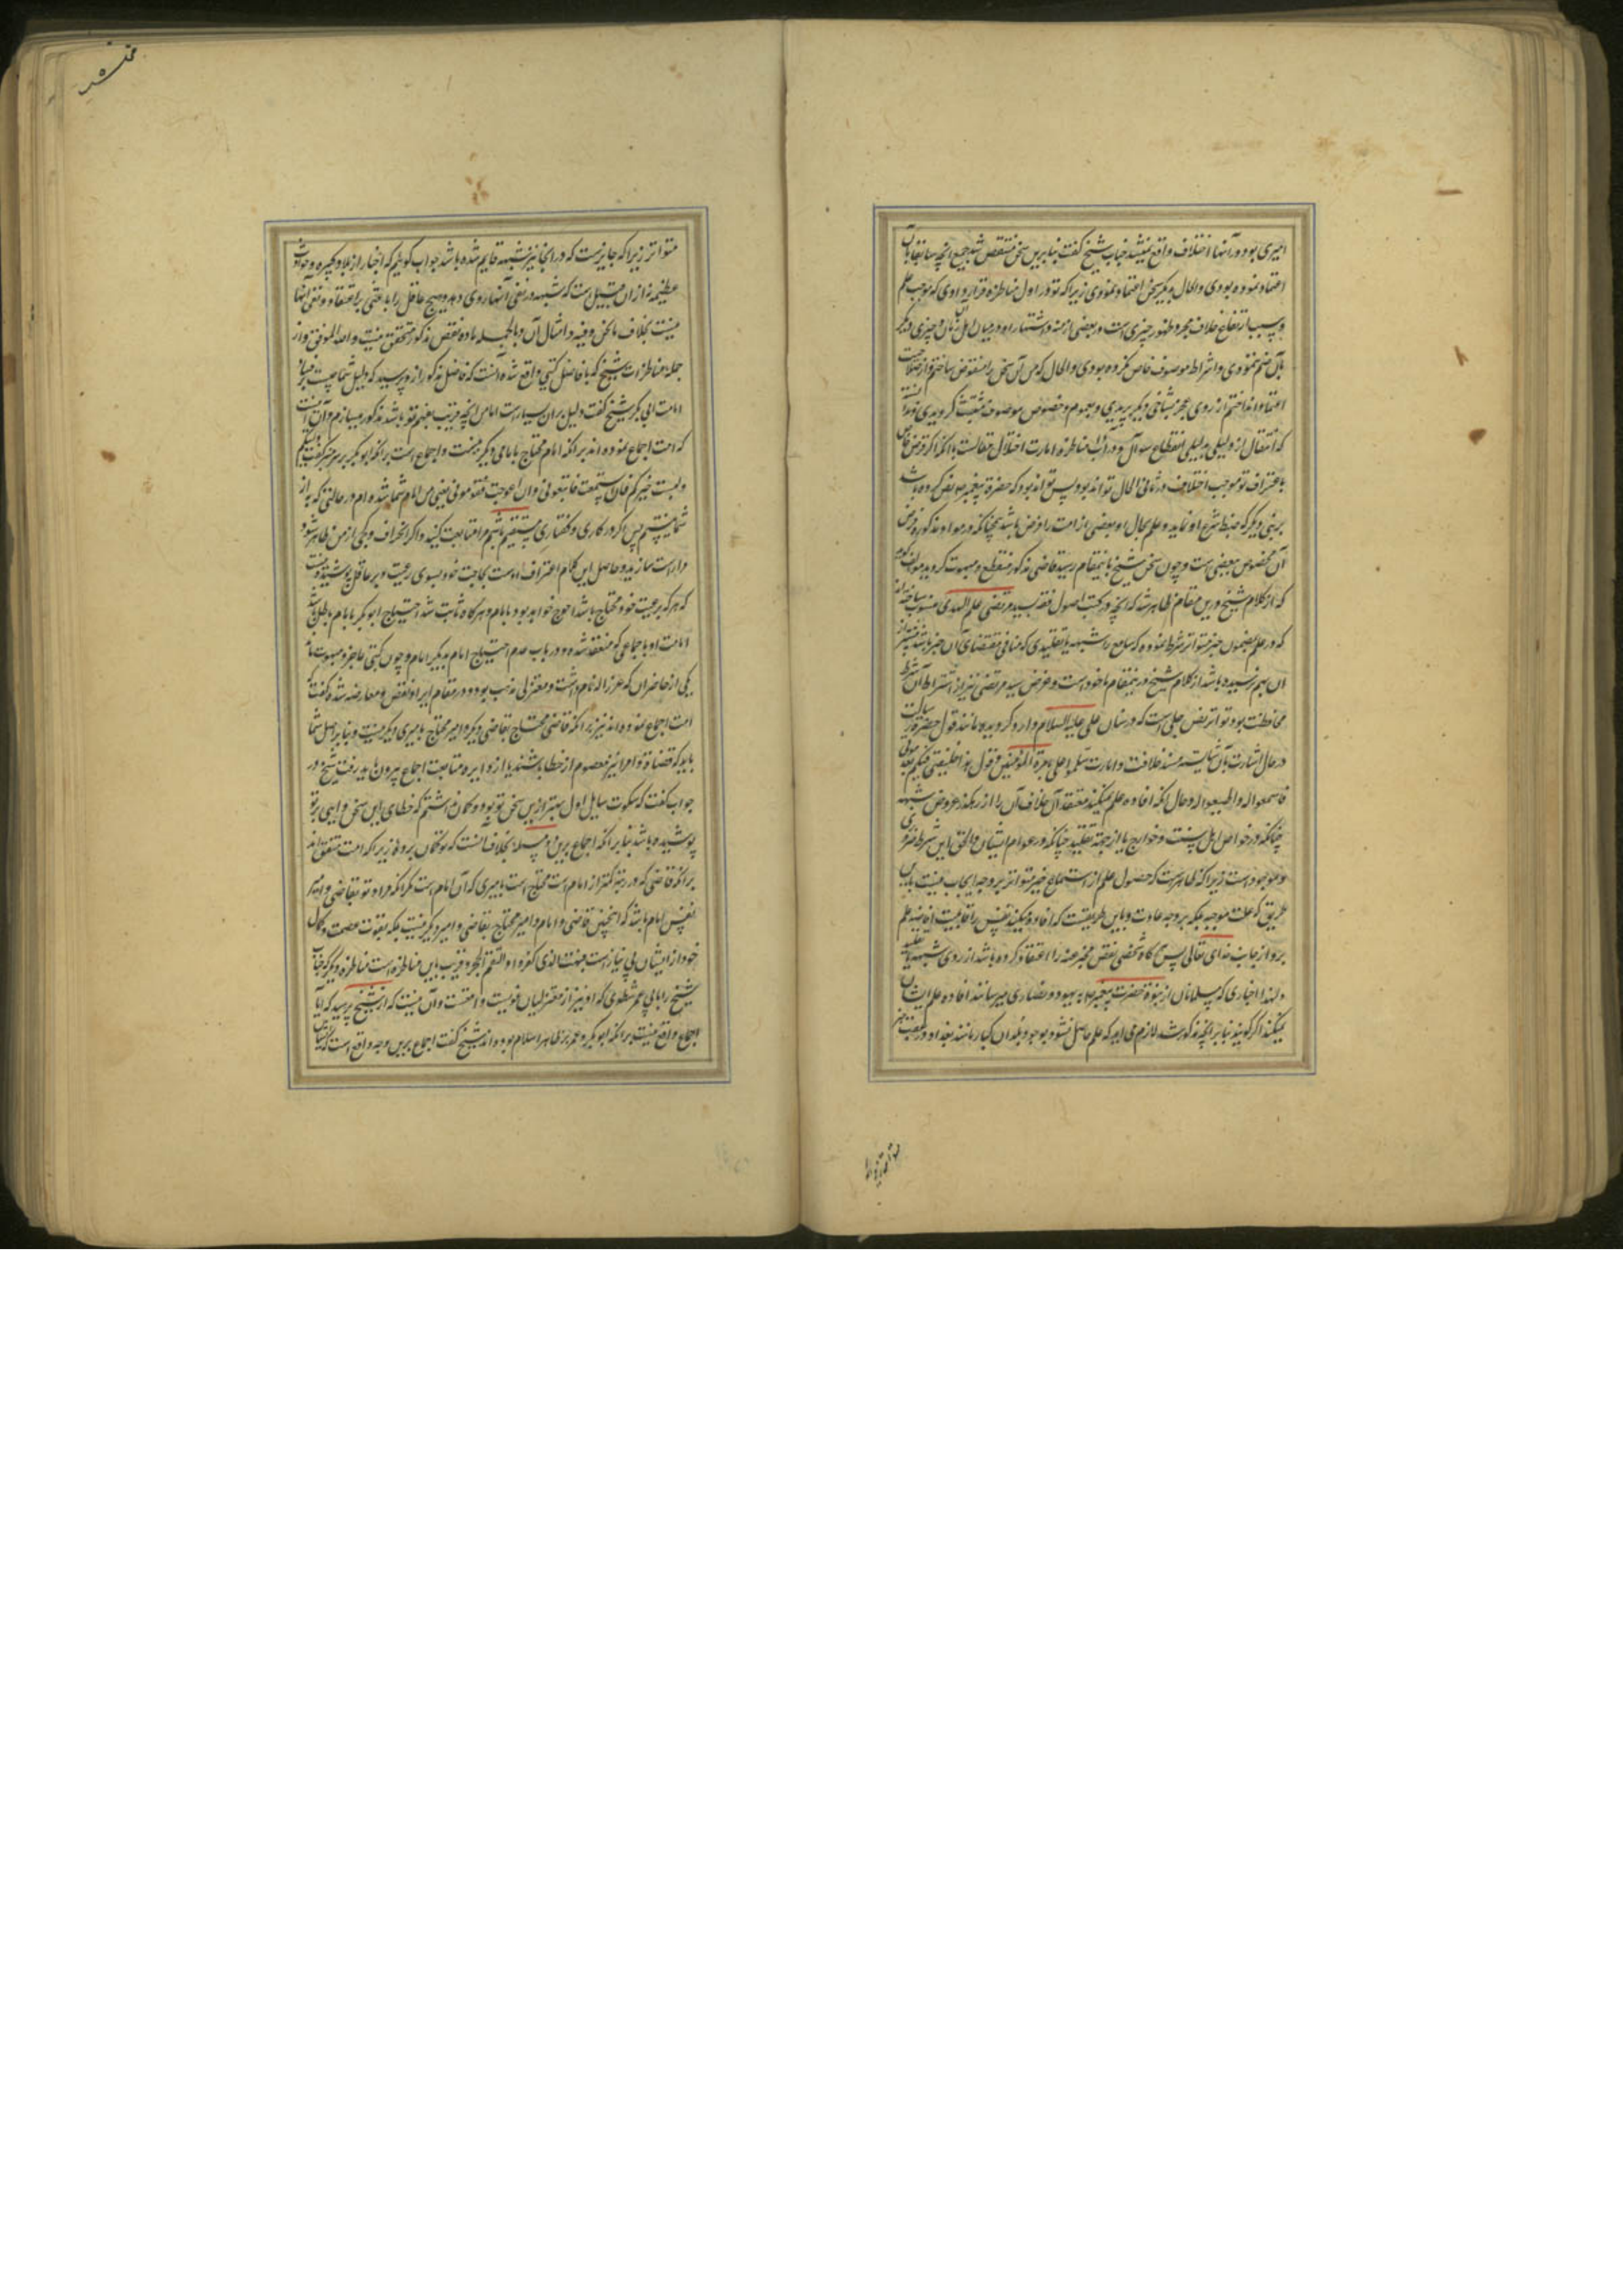 امیری بود و در آنها اختلاف واقع نمیشد جناب شیخ گفت بنابرین سخن منتقض شد جمیع آنچه سابقا بآن
اعتماد نموده بودی والحال بدیگر سخن اعتماد نمودی زیرا که تو در اول مناظره قرار دادی که موجب علم
و سبب ارتفاع خلاف مجرد ظهور چیزی است در بعضی ازمنه و اشتهار او در میان اهل آن زمان و چیزی دیگر
بآن ضم ننمودی و اشتراط موصوف خاص نکرده بودی والحال که من آن سخن را منقوض ساختم و از صلاحیت
اعتماد انداختم از روی عجز بشاخی دیگر پریدی و بعموم و خصوص موصوف متشبث گردیدی ندانسته
که انتقال از دلیلی بدلیلی انقطاع سوآل و در آداب مناظره امارت اختلال مقالست با آنکه اگر فرض خاص
باعتراف تو موجب اختلاف در ثانی الحال تواند بود پس تواند بود که حضرة پیغمبر ص نص کرده باشد
بر نبی دیگر که ضبط شرع او نماید و علم بحال او بعضی از امت را فرض باشد همچنانکه در مواد مذکوره فرض
آن مخصوص بعضی است و چون سخن شیخ باینمقام رسید قاضی مذکور منقطع و مبهوت گردید مولف گوید
که از کلام شیخ درین مقام ظاهر شد که آنچه در کتب اصول فقه بسید مرتضی علم الهدی منسوب ساخته‌اند
که در علم بمضمون خبر متواتر شرط نموده که سامع را شبهه یا تقلیدی که منافی مقتضای آن خبر باشد پیشتر از
آن بهم نرسیده باشد از کلام شیخ در ینمقام ماخوذ است و غرض سید مرتضی نیز از اشتراط آن شرط
محافظت بود تواتر نص جلی است که در شان علی علیه السلام وارد گردیده مانند قول حضرة رسالت
در حال اشارت بآن شایسته مسند خلافت و امارت سلموا علی بامرة المؤمنین و قول هذا خلیفتی فیکم بعد موتی
فاسمعوا له و اطیعوا له و حال آنکه افاده علم نمیکند معتقد آن خلاف آن را از رهگذر عروض شبهه
چنانکه در خواص اهل سنت و خوارج یا از جهة تقلید چنانکه در عوام ایشان والحق این شرط ضروری
و موجود است زیرا که ظاهر است که حصول علم از استماع خبر متواتر بر وجه ایجاب نیست باین
طریق که علت موجبه بلکه بر وجه عادت و باین طریقست که افاده میکند نفس را قابلیت افاضه علم
برو از جانب خدای تعالی پس هرگاه شخصی نقیض مخبر عنه را اعتقاد کرده باشد از روی شبهه یا تقلید
و لهذا اخباری که مسلمانان از نبوة حضرت پیغمبر ص به یهود و نصاری میرسانند افاده علم ایشان
نمیکند اگر گویند بنابر آنچه مذکور شد لازم می‌اید که علم حاصل نشود بوجود بلدان کبار مانند بغداد و
متواتر زیرا
متواتر زیرا که جایزست که در انجا نیز شبهه قایم شده باشد جواب گوئیم که اخبار از بلاد کبیره و حوادث
عظیمه نه از آن قبیل است که شبهه در نفی آنها روی دهد و هیچ عاقل را باعثی بر اعتقاد و نفی آنها
نیست بخلاف ما نحن فیه و امثال آن و بالجمله ماده نقض مذکور متحقق نیست والله الموفق و از
جمله مناظرات شیخ که با فاضل کتبی واقع شده آنست که فاضل مذکور ازو پرسید که دلیل شما چیست بر فساد
امامت ابی بکر شیخ گفت دلیل بران بسیارست اما من آنچه قریب بفهم تو باشد مذکور میسازم و آن آنست
که امت اجماع نموده اند بر آنکه امام محتاج بامامی دیگر نیست و اجماع است بر انکه ابوبکر بر سر منبر گفت ولیتکم
ولست خیرکم فان استقمت فاتبعونی وان اعوججت فقومونی یعنی من امام شما شده ام در حالتی که بهتر از
شما نیستم پس اگر در کاری و گفتاری مستقیم باشم مرا متابعت کنید و اگر انحراف و کجی از من ظاهر شود
مرا راست سازید و حاصل این کلام اعتراف اوست بحاجت خود بسوی رعیت و بر عاقل پوشیده نیست
که هرکه برعیت خود محتاج باشد احوج خواهد بود بامام و هرگاه ثابت شد احتیاج ابوبکر بامام باطل باشد
امامت او باجماعی که منعقد شده در باب عدم احتیاج امام بدیگر امام و چون کتبی عاجز و مبهوت ماند
یکی از حاضران که عرزاله نام داشت و معتزلی مذهب بود و در مقام ایراد نقض و معارضه شده گفت
امت اجماع نموده اند نیز بر انکه قاضی محتاج بقاضی دیگر و امیر محتاج بامیری دیگر نیست و بنابر اصل شما
باید که قضاة و امرا نیز معصوم از خطا باشند یا از دایره متابعت اجماع بیرون باید رفت شیخ در
جواب گفت که سکوت سایل اول بهتر ازین سخن تو بود و گمان نداشتم که خطای این سخن واهی بر تو
پوشیده باشد بنابر آنکه اجماع برین دو مسله بخلاف آنست که تو گمان برده زیرا که امت متفق اند
بر آنکه قاضی که در رتبه کمتر از امام است محتاج است بامیری که آن امام است مگر انکه مراد تو بقاضی و امیر
نفس امام باشد که اینچنین قاضی و امام و امیر محتاج بقاضی و امیر دیگر نیست بلکه بقوت عصمت و کمال
خود از ایشان بی نیاز است فبهت الذی کفر و او التقم الحجر و قریب باین مناظره است مناظره دیگر که جناب
شیخ را با ابی عمر شطوی که او نیز از معتزلیان غویست واقعست و آن اینست که از شیخ پرسید که آیا
اجماع واقع نیست بر انکه ابوبکر و عمر بر ظاهر اسلام بوده اند شیخ گفت اجماع برین وجه واقع است که ایشان